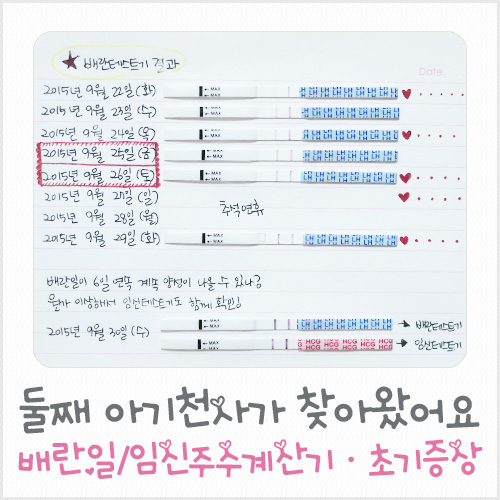 ★ 배란테스트기 결과
Date
2015년 9월 22일 (화)
2015년 9월 23일 (수)
2015년 9월 24일 (목)
2015년 9월 25일 (금)
2015년 9월 26일 (토)
2015년 9월 27일 (일)
추석연휴
2015년 9월 28일 (월)
2015년 9월 29일 (화)
배란일이 6일 연속 계속 양성이 나올 수 있나?
뭔가 이상해서 임신테스트기도 함께 확인!
2015년 9월 30일 (수)
→ 배란테스트기
→ 임신테스트기
둘째 아기천사가 찾아왔어요
배란일/임신주수계산기 · 초기증상